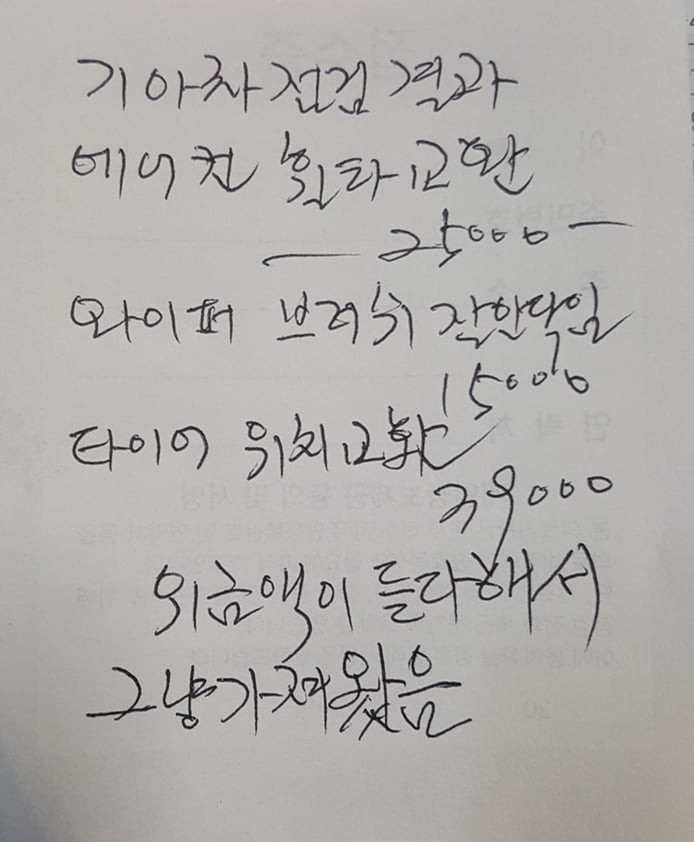 기아차 점검 결과
에어컨 휠타 교환
25000
와이퍼 브러쉬 잘안닥임
15000
타이어 위치교환
39000
위금액이 든다해서
그냥 가져왔음